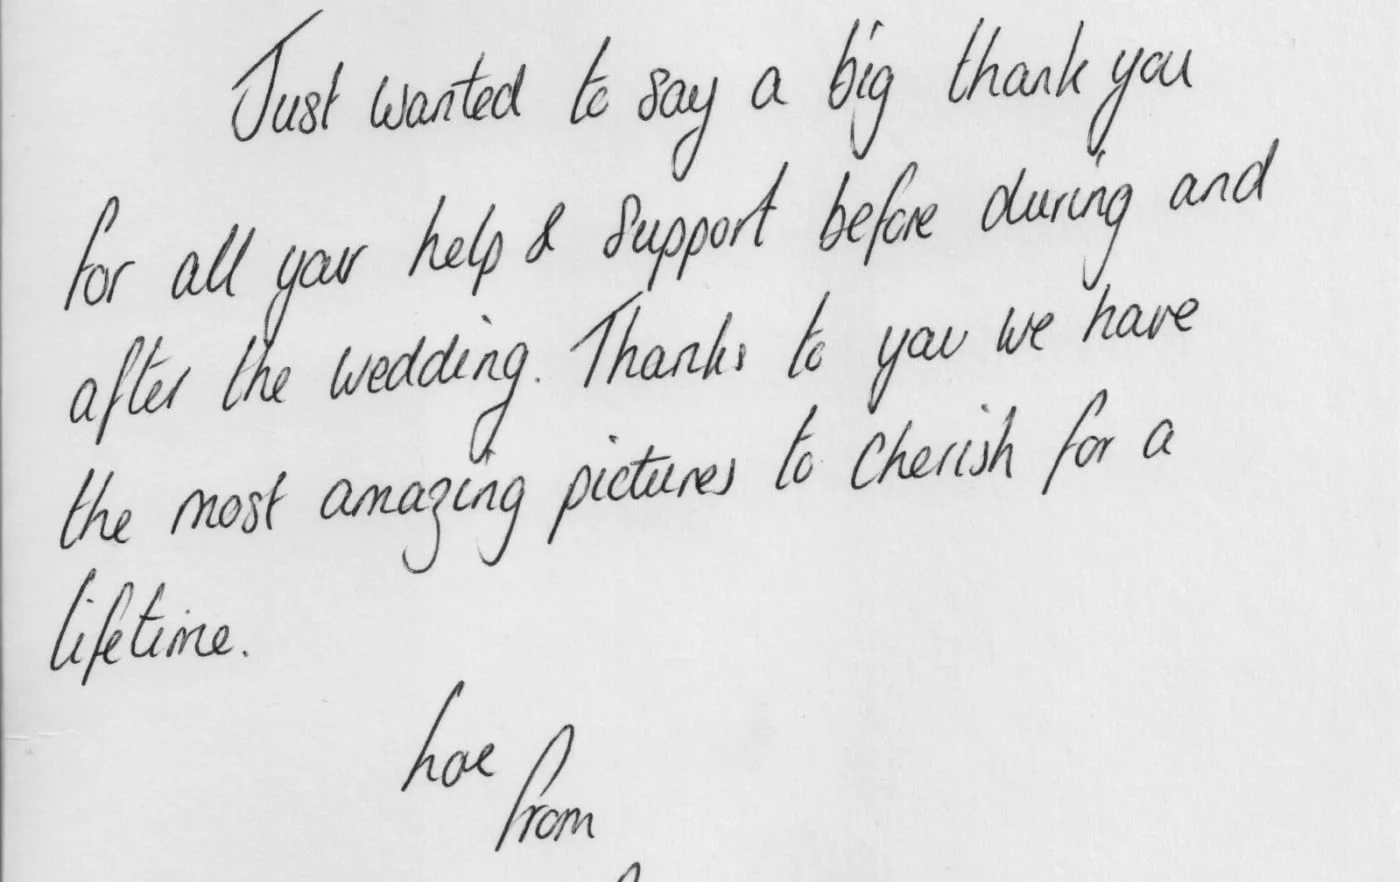 Just wanted to say a big thank you
for all your help & support before during and
after the wedding. Thanks to you we have
the most amazing pictures to cherish for a
lifetime.
Love
from